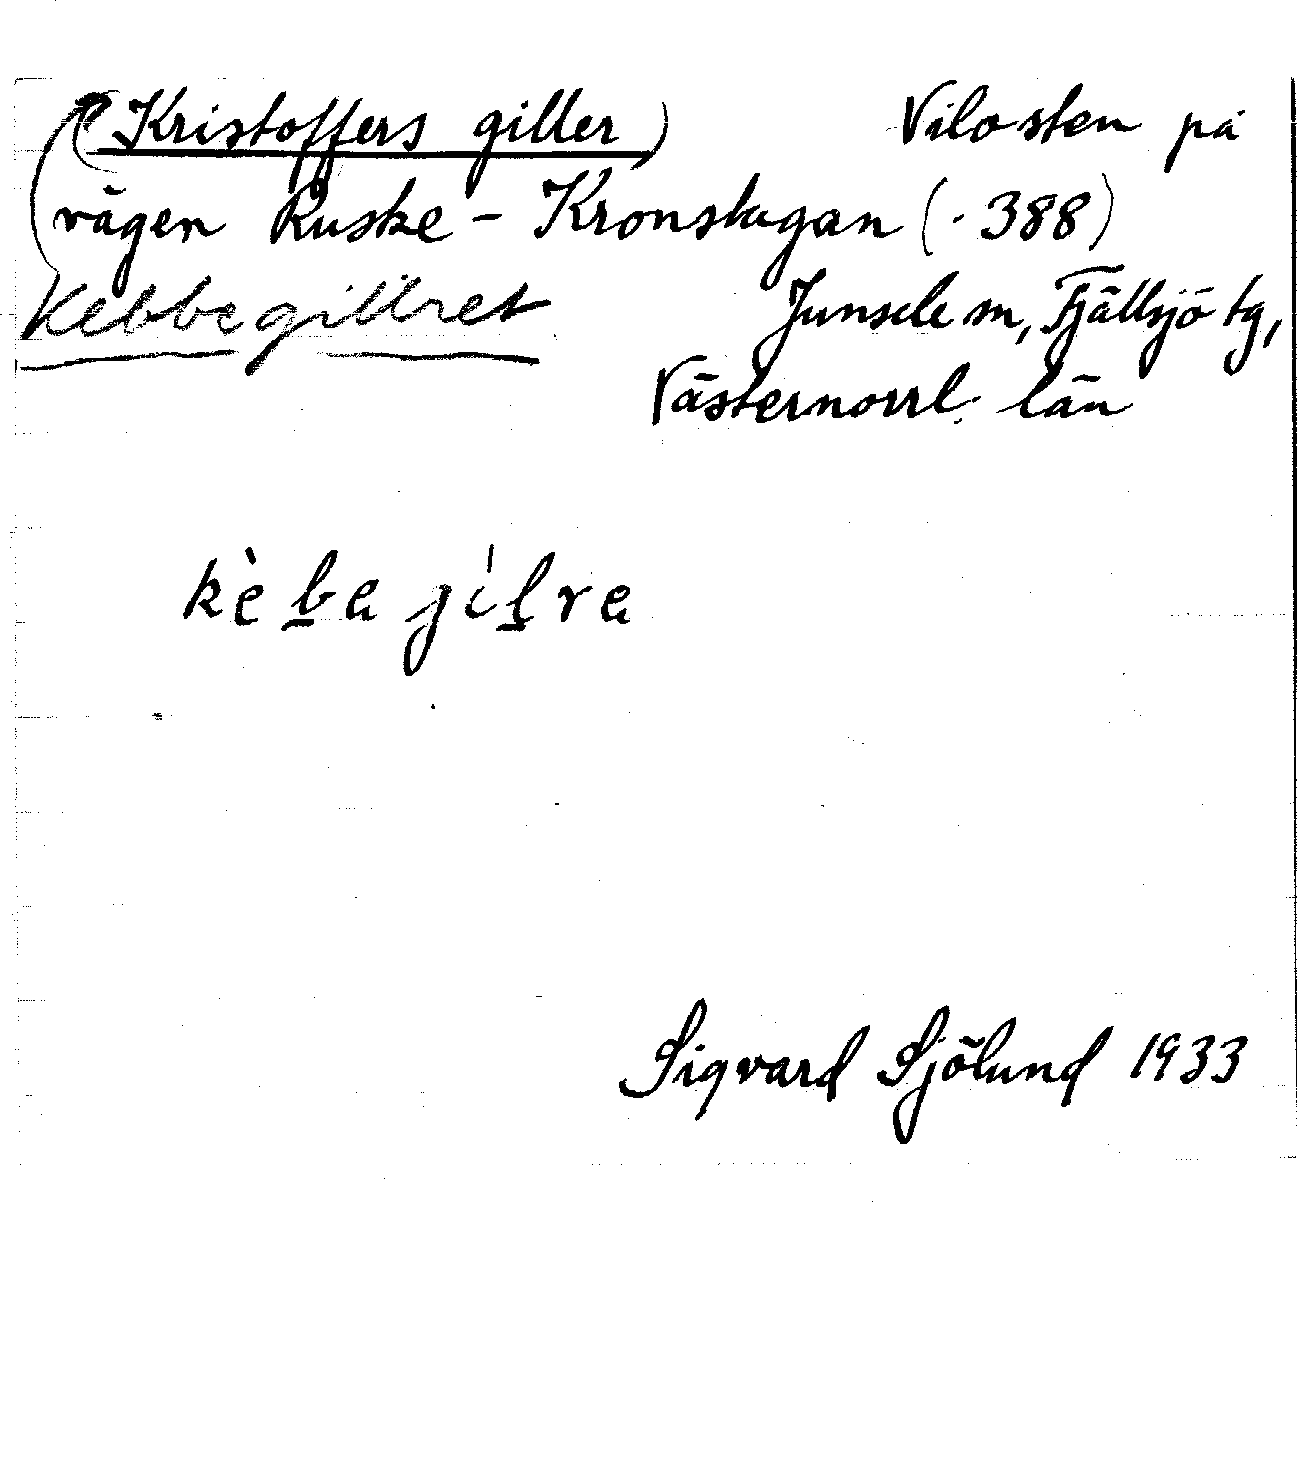 (Kristoffers giller) Vilosten på
vägen Ruske - Kronstugan (· 388)
Kebbegillret Junsele sn, Fjällsjö tg,
Västernorrl. län
kèba gilra
Sigvard Sjölund 1933